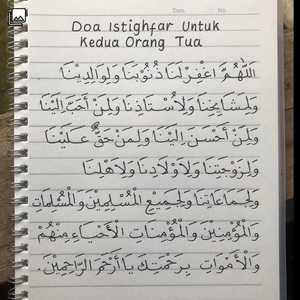 Date. No.
Doa Istighfar Untuk
Kedua Orang Tua
اَللّٰهُمَّ اغْفِرْلَنَا ذُنُوْبَنَا وَلِوَالِدِيْنَا
وَلِمَشَايِخِنَا وَلِاُسْتَاذِنَا وَلِمَنْ اَحَبَّ اِلَيْنَا
وَلِمَنْ اَحْسَنَ اِلَيْنَا وَلِمَنْ حَقٌّ عَلَيْنَا
وَلِزَوْجَتِنَا وَلِاَوْلَادِنَا وَلِاَهْلِنَا
وَلِجَمَاعَتِنَا وَلِجَمِيْعِ الْمُسْلِمِيْنَ وَالْمُسْلِمَاتِ
وَالْمُؤْمِنِيْنَ وَالْمُؤْمِنَاتِ الْاَحْيَاءِ مِنْهُمْ
وَالْاَمْوَاتِ بِرَحْمَتِكَ يَااَرْحَمَ الرَّاحِمِيْنَ.